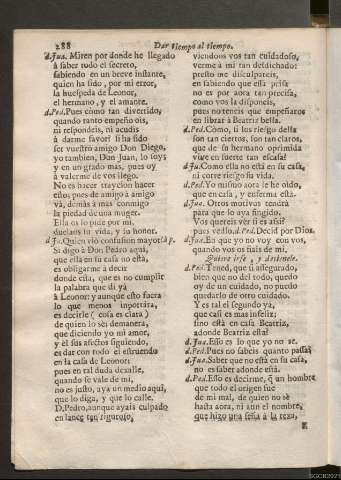 288
Dar tiempo al tiempo.
d.Jua. Miren por donde he llegado
à saber todo el secreto,
sabiendo en un breve instante,
quien ha sido, por mi error,
la huespeda de Leonor,
el hermano, y el amante.
d.Ped. Pues como tan divertido,
quando tanto empeño ois,
ni respondeis, ni acudis
à darme favor? si ha sido
ser vuestro amigo Don Diego,
yo tambien, Don Juan, lo soys
y en un grado mas, pues oy
à valerme de vos llego.
No es hacer traycion hacer
esto; pues de amigo à amigo
và, demàs à mas conmigo
la piedad de una muger.
Ella os lo pide por mi,
duelaos su vida, y su honor.
d.Ju. Quien viò confusion mayor? àp.
Si digo à Don Pedro aqui,
que ella en su casa no està,
es obligarme à decir
donde està, que es no cumplir
la palabra que di yà
à Leonor: y aunque esto fuera
lo que menos importàra,
es decirle (cosa es clara)
de quien lo sè; de manera,
que diciendo yo mi amor,
y èl sus afectos siguiendo,
es dar con todo el estruendo
en la casa de Leonor:
pues en tal duda dexalle,
quando se vale de mi,
no es justo, aya un medio aqui,
que lo diga, y que lo calle.
D. Pedro, aunque ayais culpado
en lance tan riguroso,
viendoos vos tan cuidadoso,
verme à mi tan desdichado:
presto me disculpareis,
en sabiendo que essa prisa
no es por aora tan precisa,
como vos la disponeis,
pues no teneis que empeñaros
en librar à Beatriz bella.
d.Ped. Còmo, si los riesgos della
son tan ciertos, son tan claros,
que de su hermano oprimida
vive en suerte tan escasa?
d.Ju. Como ella no està en su casa,
ni corre riesgo su vida.
d.Ped. Yo mismo aora le he oìdo,
que en casa, y enferma està.
d.Jua. Otros motivos tendrà
para que lo aya fingido.
Vos quereis ver si es assi?
pues vedlo. d.Ped. Decid por Dios.
d.Jua. En que yo no voy con vos,
quando vos os fiais de mi.
Quiere irse, y detienele.
d.Ped. Tened, que si assegurado,
bien que no del todo, quedo
oy de un cuidado, no puedo
quedarlo de otro cuidado.
Y es tal el segundo yà,
que casi es mas infeliz;
sino està en casa Beatriz,
adonde Beatriz està?
d.Jua. Esso es lo que yo no sè.
d.Ped. Pues no sabeis quanto passa?
d.Jua. Saber que no està en su casa,
no es saber adonde està.
d.Ped. Esso es decirme, q̃ un hombre
que todo el origen fuè
de mi mal, de quien no sè
hasta aora, ni aun el nombre,
que hizo una seña à la rexa,